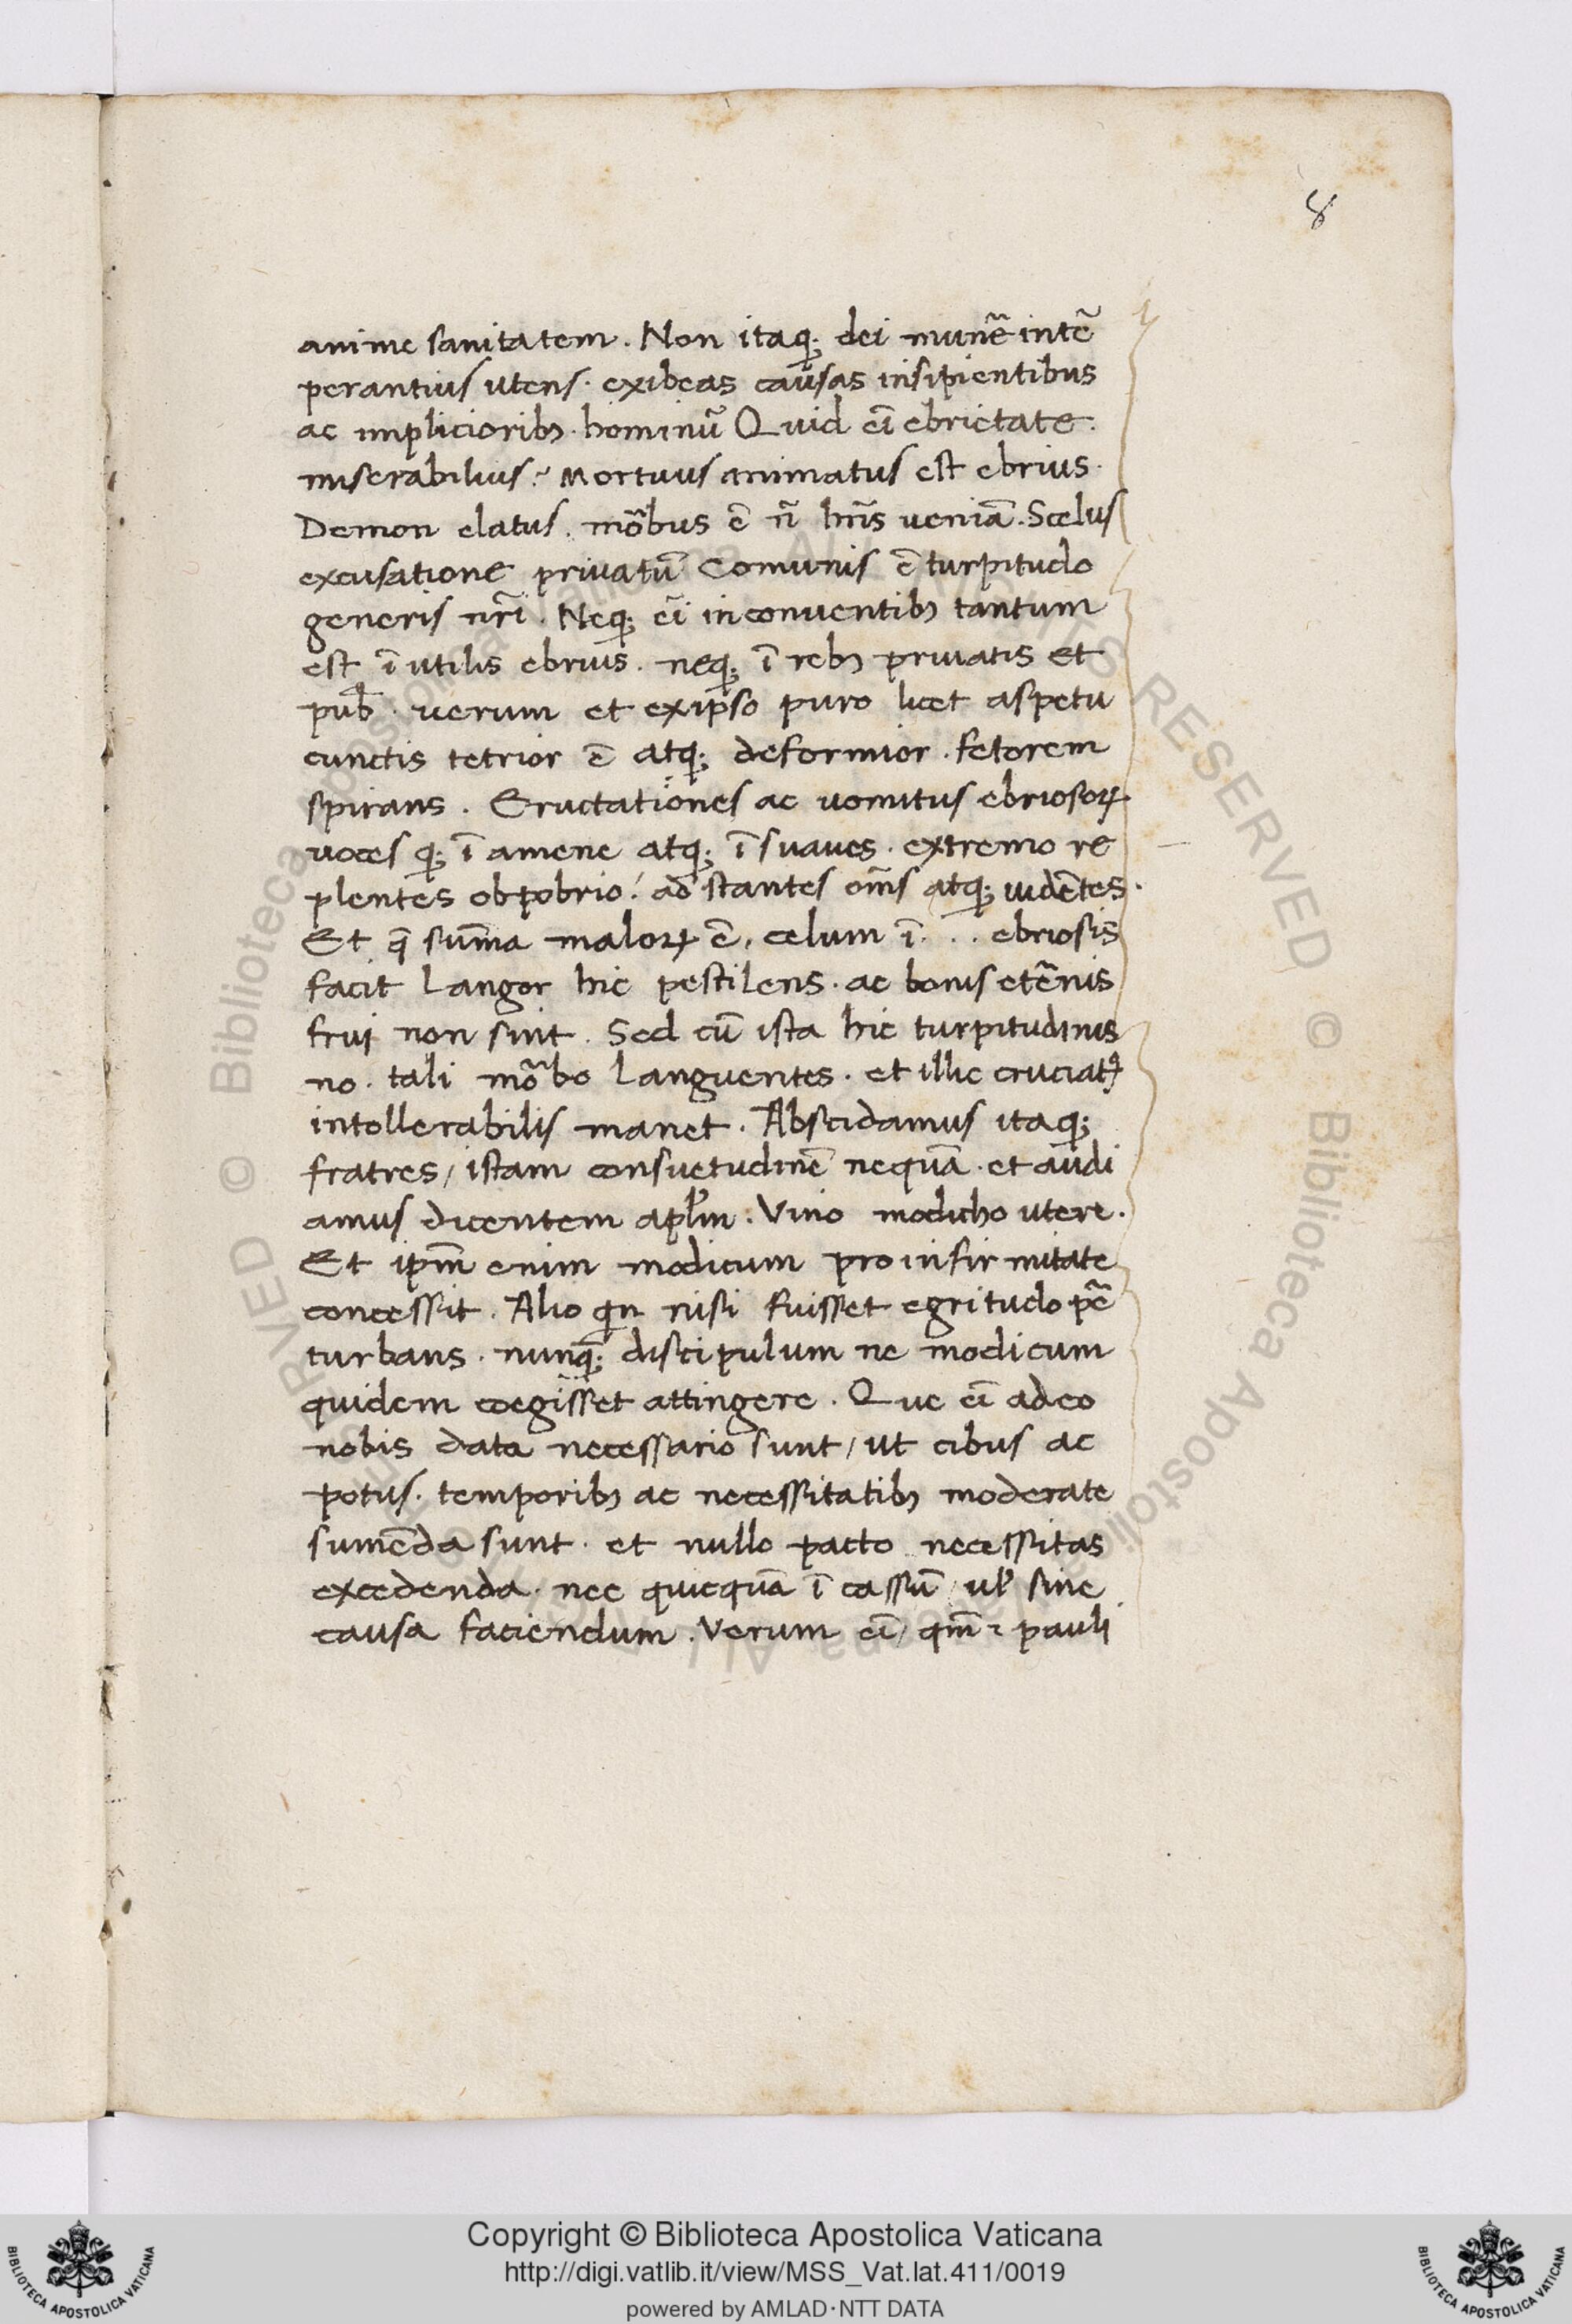 8
anime sanitatem. Non itaq; dei munẽ intẽ
perantius utens. exibeas causas insipientibus
ac implicioribꝫ. hominũ Quid ei̅ ebrietate.
miserabilius? Mortuus animatus est ebrius.
Demon elatus. mõbus ẽ ñ hñs ueniã. Scelus
excusatione priuatũ Comunis ẽ turpitudo
generis nr̃i. Neq; ei̅ in conuentibꝫ tantum
est ĩ utilis ebrius. neq; ĩ rebꝫ priuatis et
pub̃. uerum et ex ip̃so puro licet aspetu
cunctis tetrior ẽ atq; deformior. fetorem
spirans. Eructationes ac uomitus ebriosoꝝ
uoces q; ĩ amene atq; ĩ suaues. extremo re
plentes obpobrio! ad stantes om̃s atq; uidẽtes.
Et q̃ sum̃a maloꝝ ẽ, celum ĩ. . . ebriosis
facit langor hic pestilens. ac bonis etẽnis
frui non sint. Sed cũ ista hic turpitudinis
no. tali mõbo languentes. et illic cruciatꝰ
intollerabilis manet. Abscidamus itaq;
fratres / istam consuetudinẽ nequã. et audi
amus dicentem apl̃m. Vino modicho utere.
Et ip̃m enim modicum pro infirmitate
concessit. Alio qn̄ nisi fuisset egritudo pẽ
turbans. nunq̃; discipulum ne modicum
quidem coegisset attingere. Que ei̅ adeo
nobis data necessario sunt / ut cibus ac
potus. temporibꝫ ac necessitatibꝫ moderate
sumẽda sunt. et nullo pacto necessitas
excedenda. nec quicquã ĩ cassũ / ul̃ sine
causa faciendum. Verum ei̅ / qm̃ pauli
Copyright © Biblioteca Apostolica Vaticana
http://digi.vatlib.it/view/MSS_Vat.lat.411/0019
powered by AMLAD·NTT DATA